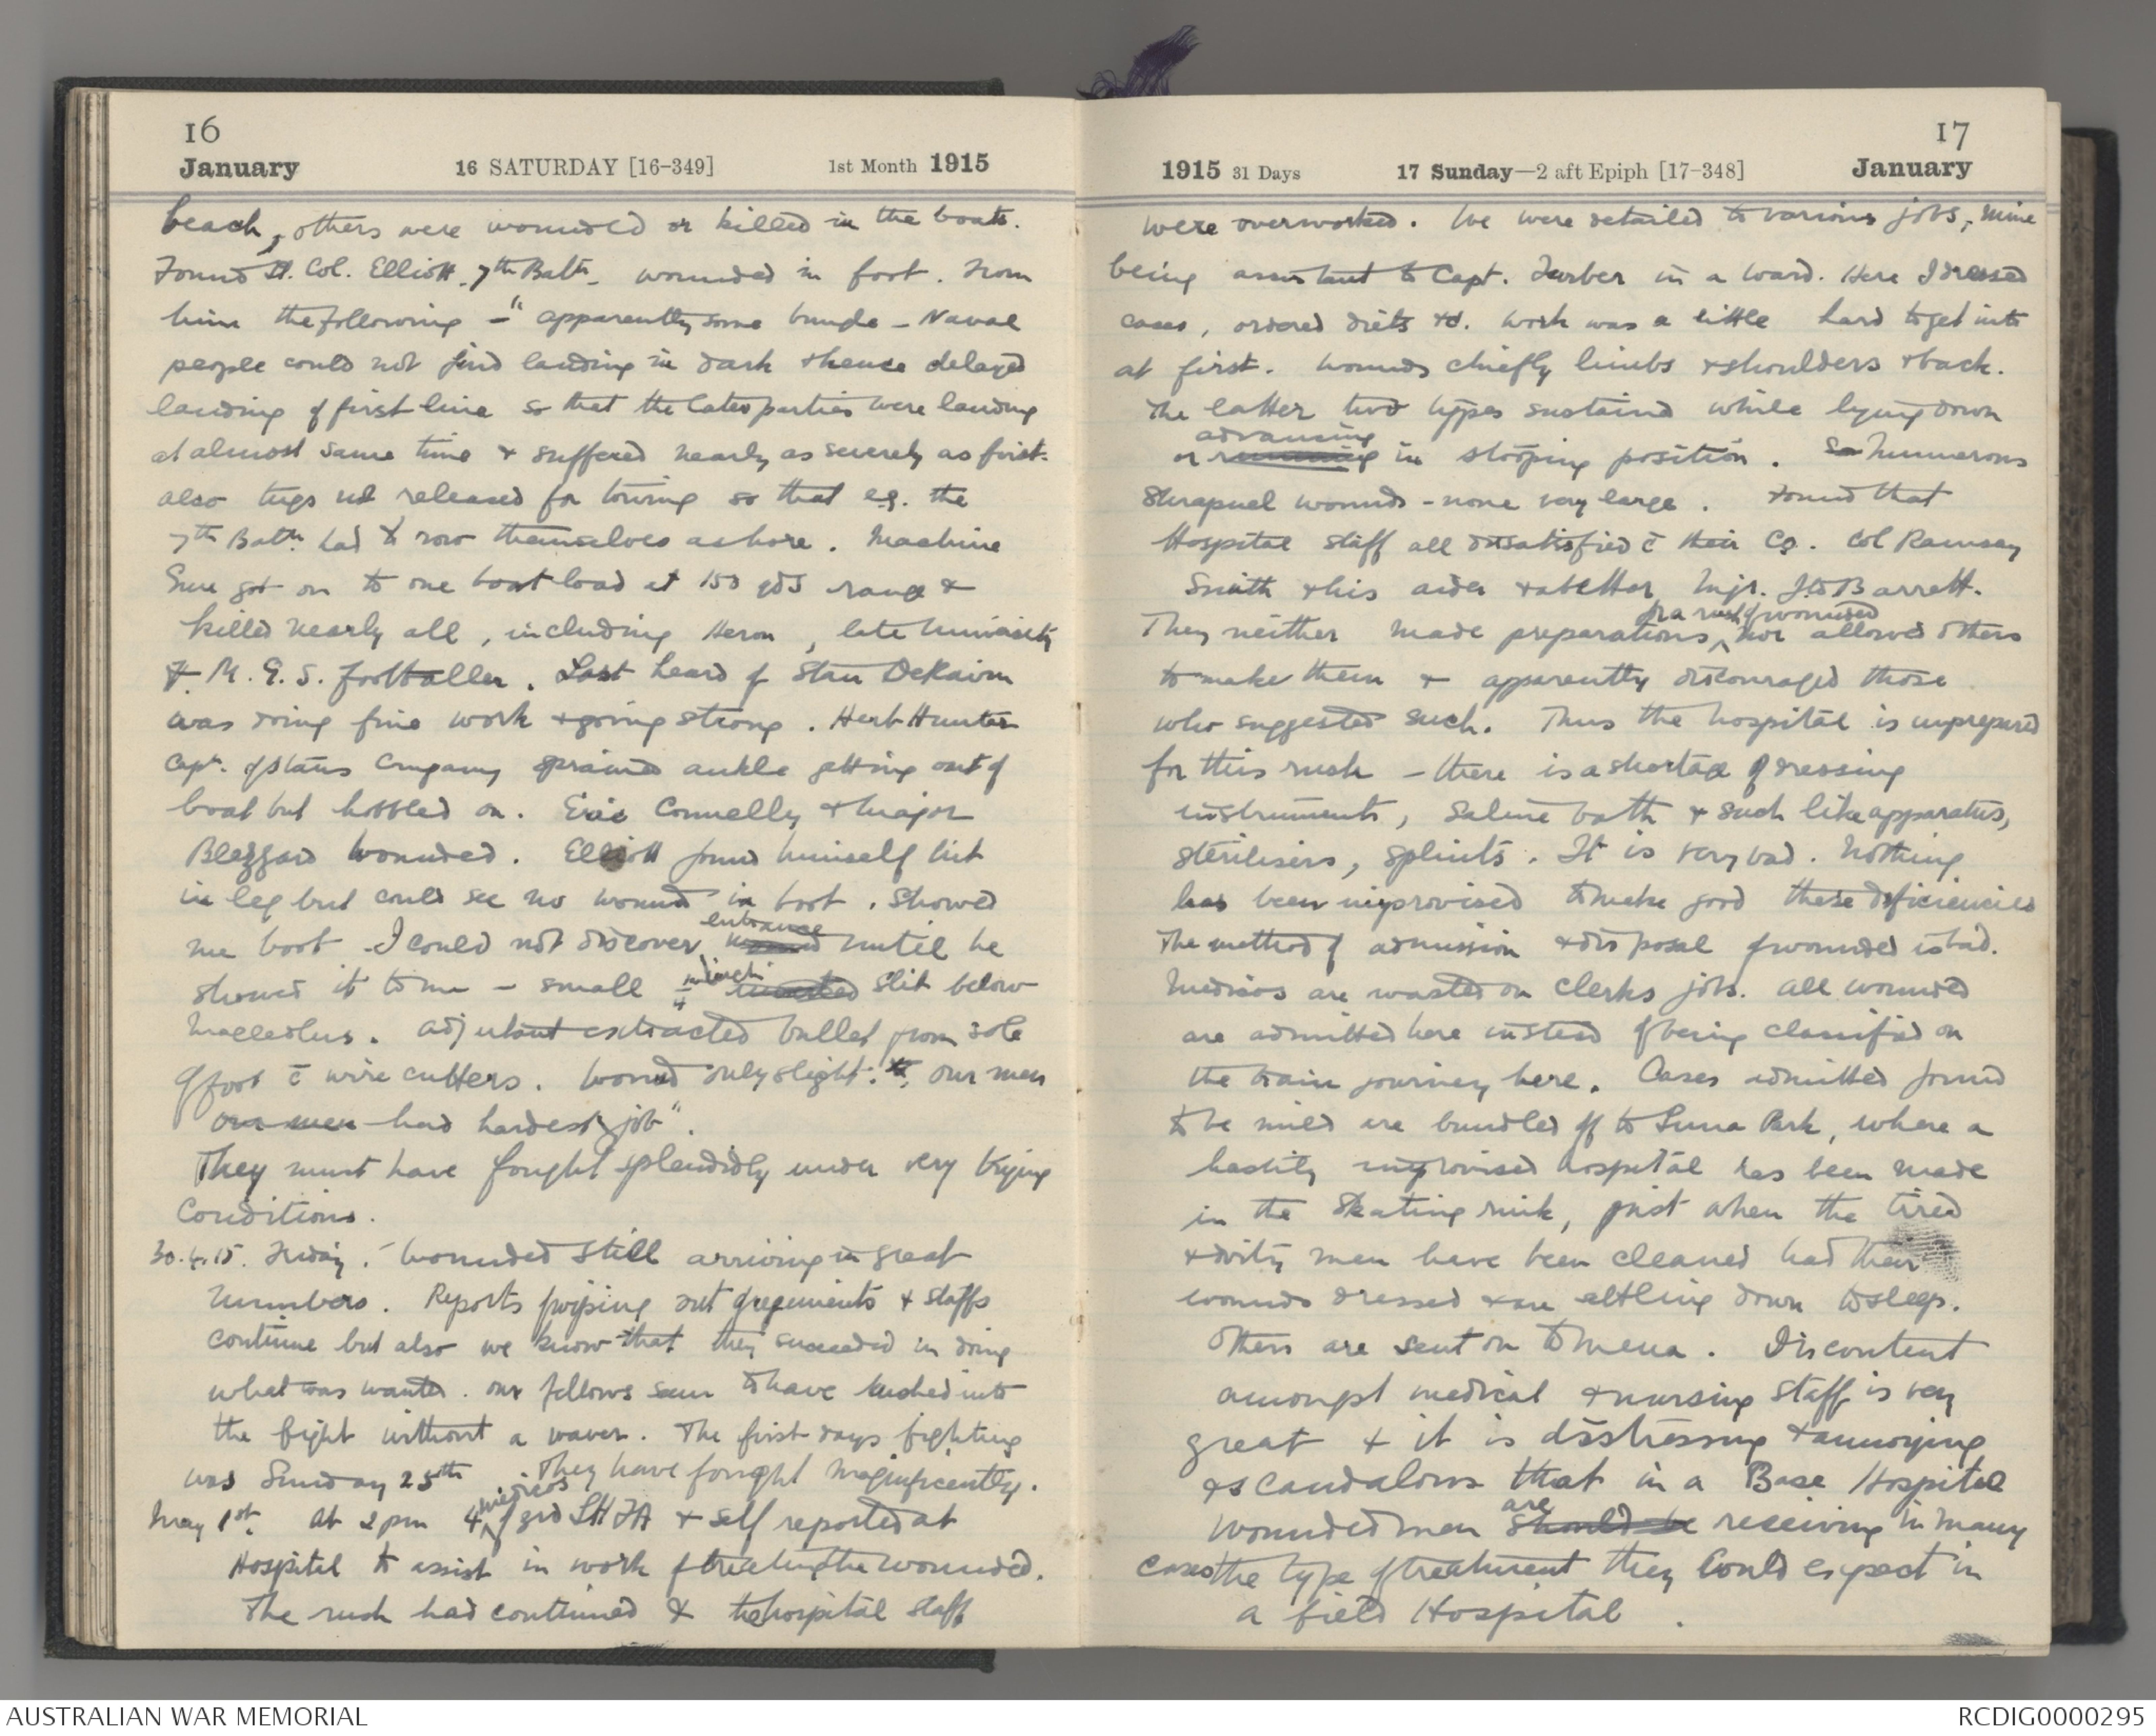 16
January 16 SATURDAY [16-349] 1st Month 1915
beach, others were wounded or killed in the boats.
Found Lt. Col. Elliott, 7th Battn wounded in foot. From
him the following - " apparently some bungle - Naval
people could not find landing in dark & hence delayed
landing of first line so that the later parties were landing
at almost same time & suffered nearly as severely as first.
also tugs not released for towing so that e.g. the
7th Battn. had to row themselves ashore. Machine
Gun got on to one boat load at 150 yds range &
killed nearly all, including Heron, late University
& M.G.S. footballer. Last heard of Stan DeRavin
was doing fine work & going strong. Herb Hunter
Capt. of Stans Company sprained ankle getting out of
boat but hobbled on. Eric Connelly & Major
Blezzard wounded. Elliott found himself hit
in leg but could see no wound in boot. Showed
me boot. I could not discover wound entrance until he
showed it to me - small ¼ inch slit below
malleolus. Adjutant extracted bullet from sole
of foot c̄ wire cutters. Wound only slight. our men
our men had hardest job".
They must have fought splendidly under very trying
Conditions.
30.4.15. Friday. Wounded still arriving in great
numbers. Reports of wiping out of regiments & staffs
continue but also we know that they succeeded in doing
what was wanted. our fellows seem to have rushed into
the fight without a waver. The first days fighting
was Sunday 25th They have fought magnificently.
May 1st. At 2pm 4 medicos of 3rd LHFA & self reported at
Hospital to assist in work of treating the wounded.
The rush had continued & the hospital staff
17
1915 31 Days 17 Sunday—2 aft Epiph [17-348] January
were overworked. We were detailed to various jobs, mine
being assistant to Capt. Furber in a ward. Here I dressed
cases, ordered diets &c. Work was a little hard to get into
at first. Wounds chiefly limbs & shoulders & back.
The latter two types sustained while lying down
or running advancing in stooping position. So Numerous
Shrapnel wounds - none very large. Found that
Hospital staff all dissatisfied c̄ their Co. Col Ramsay
Smith & his aider & abettor Mjr. J.W. Barrett.
They neither made preparations for a rush of wounded nor allowed others
to make them & apparently discouraged those
who suggested such. Thus the hospital is unprepared
for this rush - there is a shortage of dressing
instruments, saline bath & such like apparatus,
sterilisers, splints. It is very bad. Nothing
has been improvised to make good these deficiencies
The method of admission & disposal of wounded is bad.
Medicos are wasted on clerks jobs. All wounded
are admitted here instead of being classified on
the train journey here. Cases admitted found
to be mild are bundled off to Luna Park, where a
hastily improvised hospital has been made
in the Skating rink, just when the tired
& dirty men have been cleaned had their
wounds dressed & are settling down to sleep.
Others are sent on to Mena. Discontent
amongst medical & nursing staff is very
great & it is distressing & annoying
& scandalous that in a Base Hospital
wounded men should be are receiving in many
cases the type of treatment they could expect in
a field Hospital.
AUSTRALIAN WAR MEMORIAL RCDIG0000295